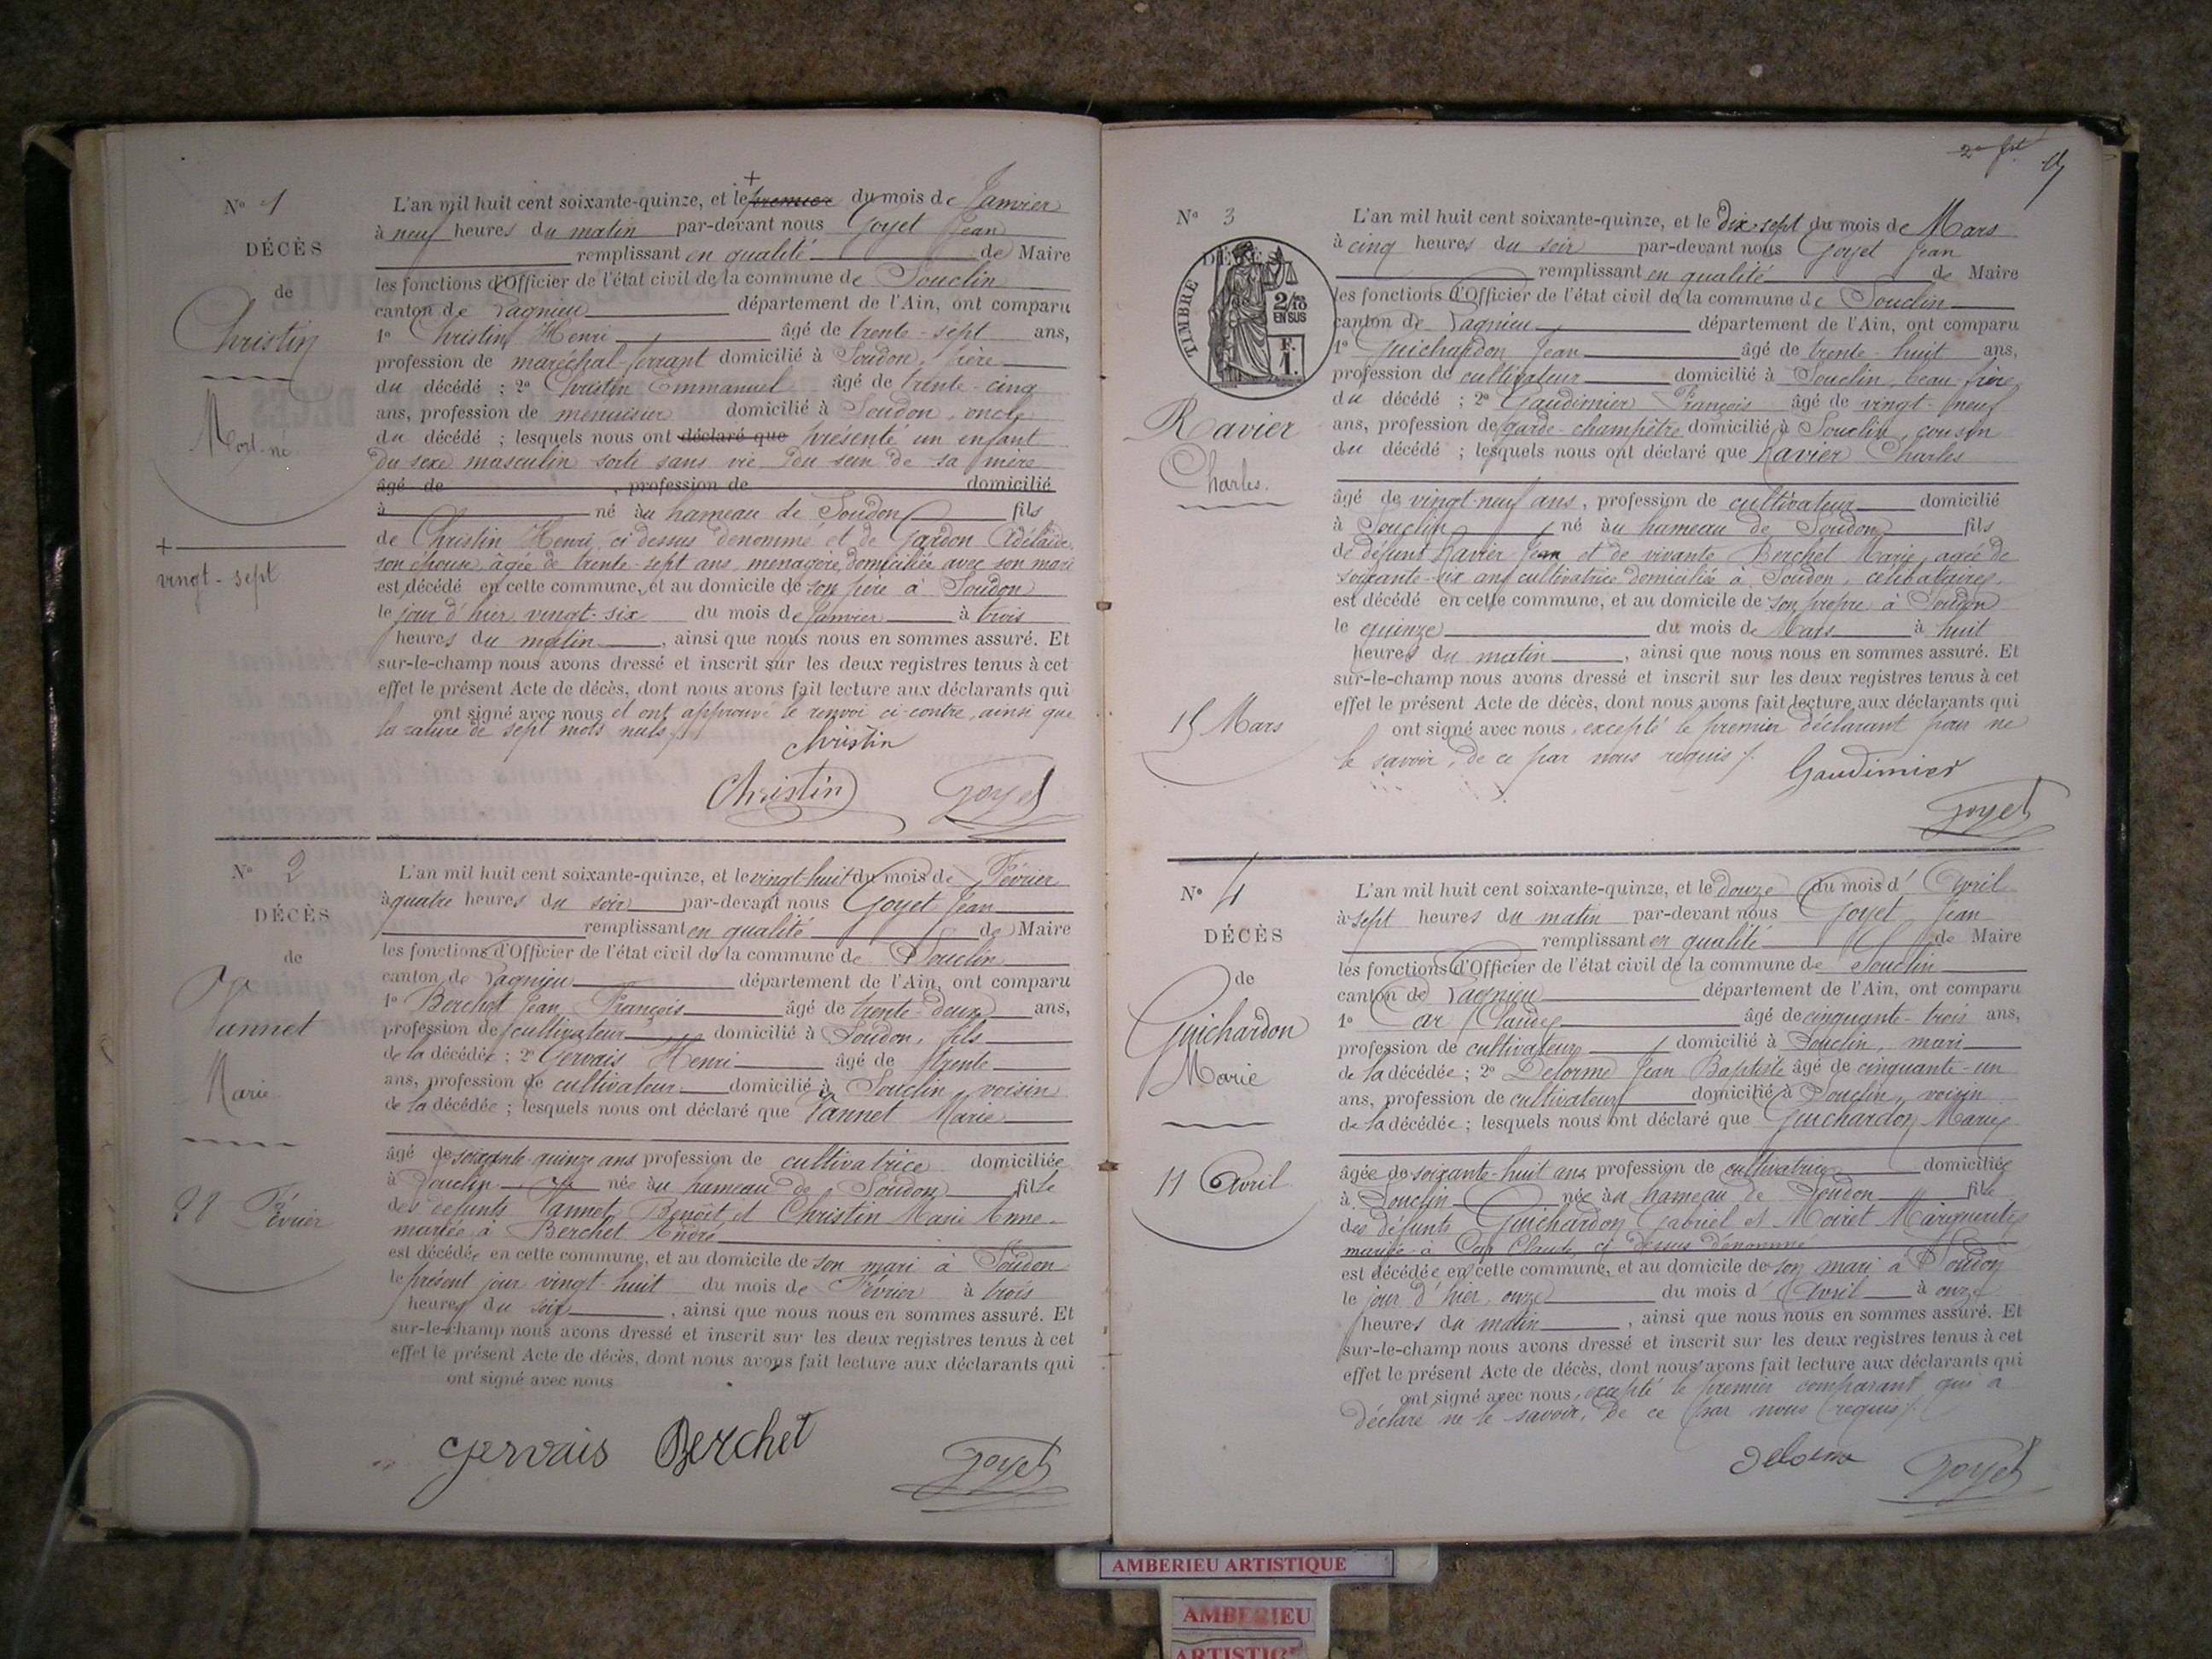 N° 1
DÉCÈS
de
Christin
Mort-né
+
vingt-sept
+
L'an mil huit cent soixante-quinze, et le premier du mois de Janvier
à neuf heures du matin par-devant nous Goyet Jean
remplissant en qualité de Maire
les fonctions d'Officier de l'état civil de la commune de Souclin
canton de Lagnieu département de l'Ain, ont comparu
1° Christin Henri âgé de trente-sept ans,
profession de maréchal-ferrant domicilié à Soudon, père
du décédé ; 2° Christin Emmanuel âgé de trente-cinq
ans, profession de menuisier domicilié à Soudon, oncle
du décédé ; lesquels nous ont déclaré que présenté un enfant
du sexe masculin sorti sans vie du sein de sa mère
âgé de , profession de domicilié
à né au hameau de Soudon fils
de Christin Henri, ci dessus dénommé et de Gardon Adélaïde,
son épouse, âgée de trente-sept ans, ménagère, domiciliée avec son mari
est décédé en cette commune, et au domicile de son père à Soudon
le jour d'hier vingt-six du mois de Janvier à trois
heures du matin , ainsi que nous nous en sommes assuré. Et
sur-le-champ nous avons dressé et inscrit sur les deux registres tenus à cet
effet le présent Acte de décès, dont nous avons fait lecture aux déclarants qui
ont signé avec nous et ont approuvé le renvoi ci-contre, ainsi que
la rature de sept mots nuls
Christin
Christin Goyet
N° 2
DÉCÈS
de
Vannet
Marie
28 Février
L'an mil huit cent soixante-quinze, et le vingt-huit du mois de Février
à quatre heures du soir par-devant nous Goyet Jean
remplissant en qualité de Maire
les fonctions d'Officier de l'état civil de la commune de Souclin
canton de Lagnieu département de l'Ain, ont comparu
1° Berchet Jean François âgé de trente-deux ans,
profession de cultivateur domicilié à Soudon, fils
de la décédée ; 2° Gervais Henri âgé de trente
ans, profession de cultivateur domicilié à Souclin, voisin
de la décédée ; lesquels nous ont déclaré que Vannet Marie
âgé de soixante-quinze ans profession de cultivatrice domiciliée
à Souclin née au hameau de Soudon fille
des défunts Vannet Benoît et Christin Marie Anne
mariée à Berchet André
est décédée en cette commune, et au domicile de son mari à Soudon
le présent jour vingt-huit du mois de Février à trois
heures du soir , ainsi que nous nous en sommes assuré. Et
sur-le-champ nous avons dressé et inscrit sur les deux registres tenus à cet
effet le présent Acte de décès, dont nous avons fait lecture aux déclarants qui
ont signé avec nous
Gervais Berchet Goyet
N° 3
DÉCÈS
TIMBRE
2/10
EN SUS
F.
1.
Ravier
Charles.
15 Mars
L'an mil huit cent soixante-quinze, et le dix-sept du mois de Mars
à cinq heures du soir par-devant nous Goyet Jean
remplissant en qualité de Maire
les fonctions d'Officier de l'état civil de la commune de Souclin
canton de Lagnieu département de l'Ain, ont comparu
1° Guichardon Jean âgé de trente-huit ans,
profession de cultivateur domicilié à Souclin, beau frère
du décédé ; 2° Gaudimier François âgé de vingt-neuf
ans, profession de garde-champêtre domicilié à Souclin, cousin
du décédé ; lesquels nous ont déclaré que Ravier Charles
âgé de vingt-neuf ans, profession de cultivateur domicilié
à Souclin né au hameau de Soudon fils
de défunt Ravier Jean et de vivante Berchet Marie, agée de
soixante-six ans cultivatrice domiciliée à Soudon, célibataire,
est décédé en cette commune, et au domicile de son propre à Soudon
le quinze du mois de Mars à huit
heures du matin , ainsi que nous nous en sommes assuré. Et
sur-le-champ nous avons dressé et inscrit sur les deux registres tenus à cet
effet le présent Acte de décès, dont nous avons fait lecture aux déclarants qui
ont signé avec nous, excepté le premier déclarant pour ne
le savoir, de ce par nous requis
Gaudimier
Goyet
N° 4
DÉCÈS
de
Guichardon
Marie
11 Avril
L'an mil huit cent soixante-quinze, et le douze du mois d'Avril
à sept heures du matin par-devant nous Goyet Jean
remplissant en qualité de Maire
les fonctions d'Officier de l'état civil de la commune de Souclin
canton de Lagnieu département de l'Ain, ont comparu
1° Car Claude âgé de cinquante-trois ans,
profession de cultivateur domicilié à Souclin, mari
de la décédée ; 2° Delorme Jean Baptiste âgé de cinquante-un
ans, profession de cultivateur domicilié à Souclin, voisin
de la décédée ; lesquels nous ont déclaré que Guichardon Marie
âgée de soixante-huit ans profession de cultivatrice domiciliée
à Souclin née au hameau de Soudon fille
des défunts Guichardon Gabriel et Moiret Marguerite
mariée à Car Claude, ci dessus dénommé
est décédée en cette commune, et au domicile de son mari à Soudon
le jour d'hier, onze du mois d'Avril à onze
heures du matin , ainsi que nous nous en sommes assuré. Et
sur-le-champ nous avons dressé et inscrit sur les deux registres tenus à cet
effet le présent Acte de décès, dont nous avons fait lecture aux déclarants qui
ont signé avec nous, excepté le premier comparant qui a
déclaré ne le savoir, de ce par nous requis
Delorme Goyet
AMBERIEU ARTISTIQUE
AMBERIEU
ARTISTIQUE